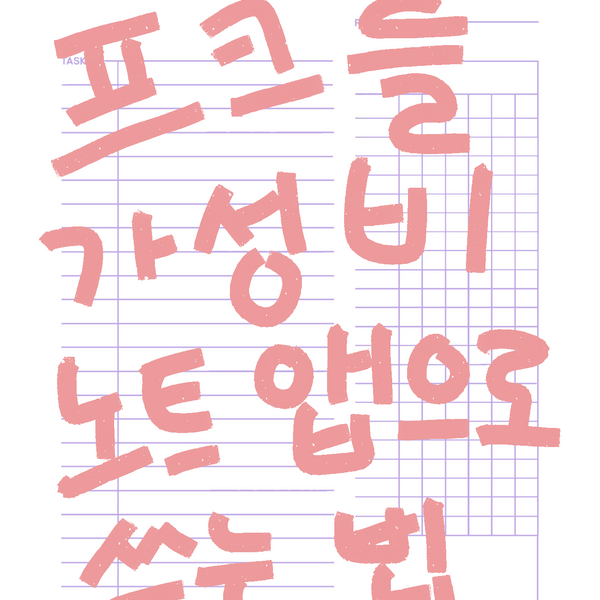 프크를
TASK
가성비
노트 앱으로
쓰는 법